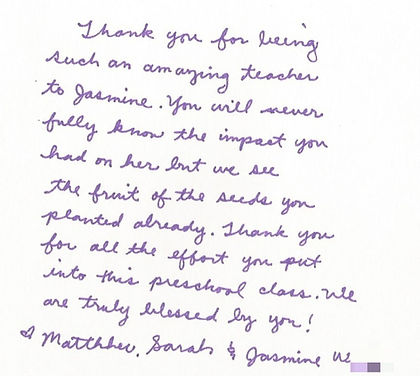 Thank you for being
such an amazing teacher
to Jasmine. You will never
fully know the impact you
had on her but we see
the fruit of the seeds you
planted already. Thank you
for all the effort you put
into this preschool class. We
are truly blessed by you!
Matthew, Sarah & Jasmine